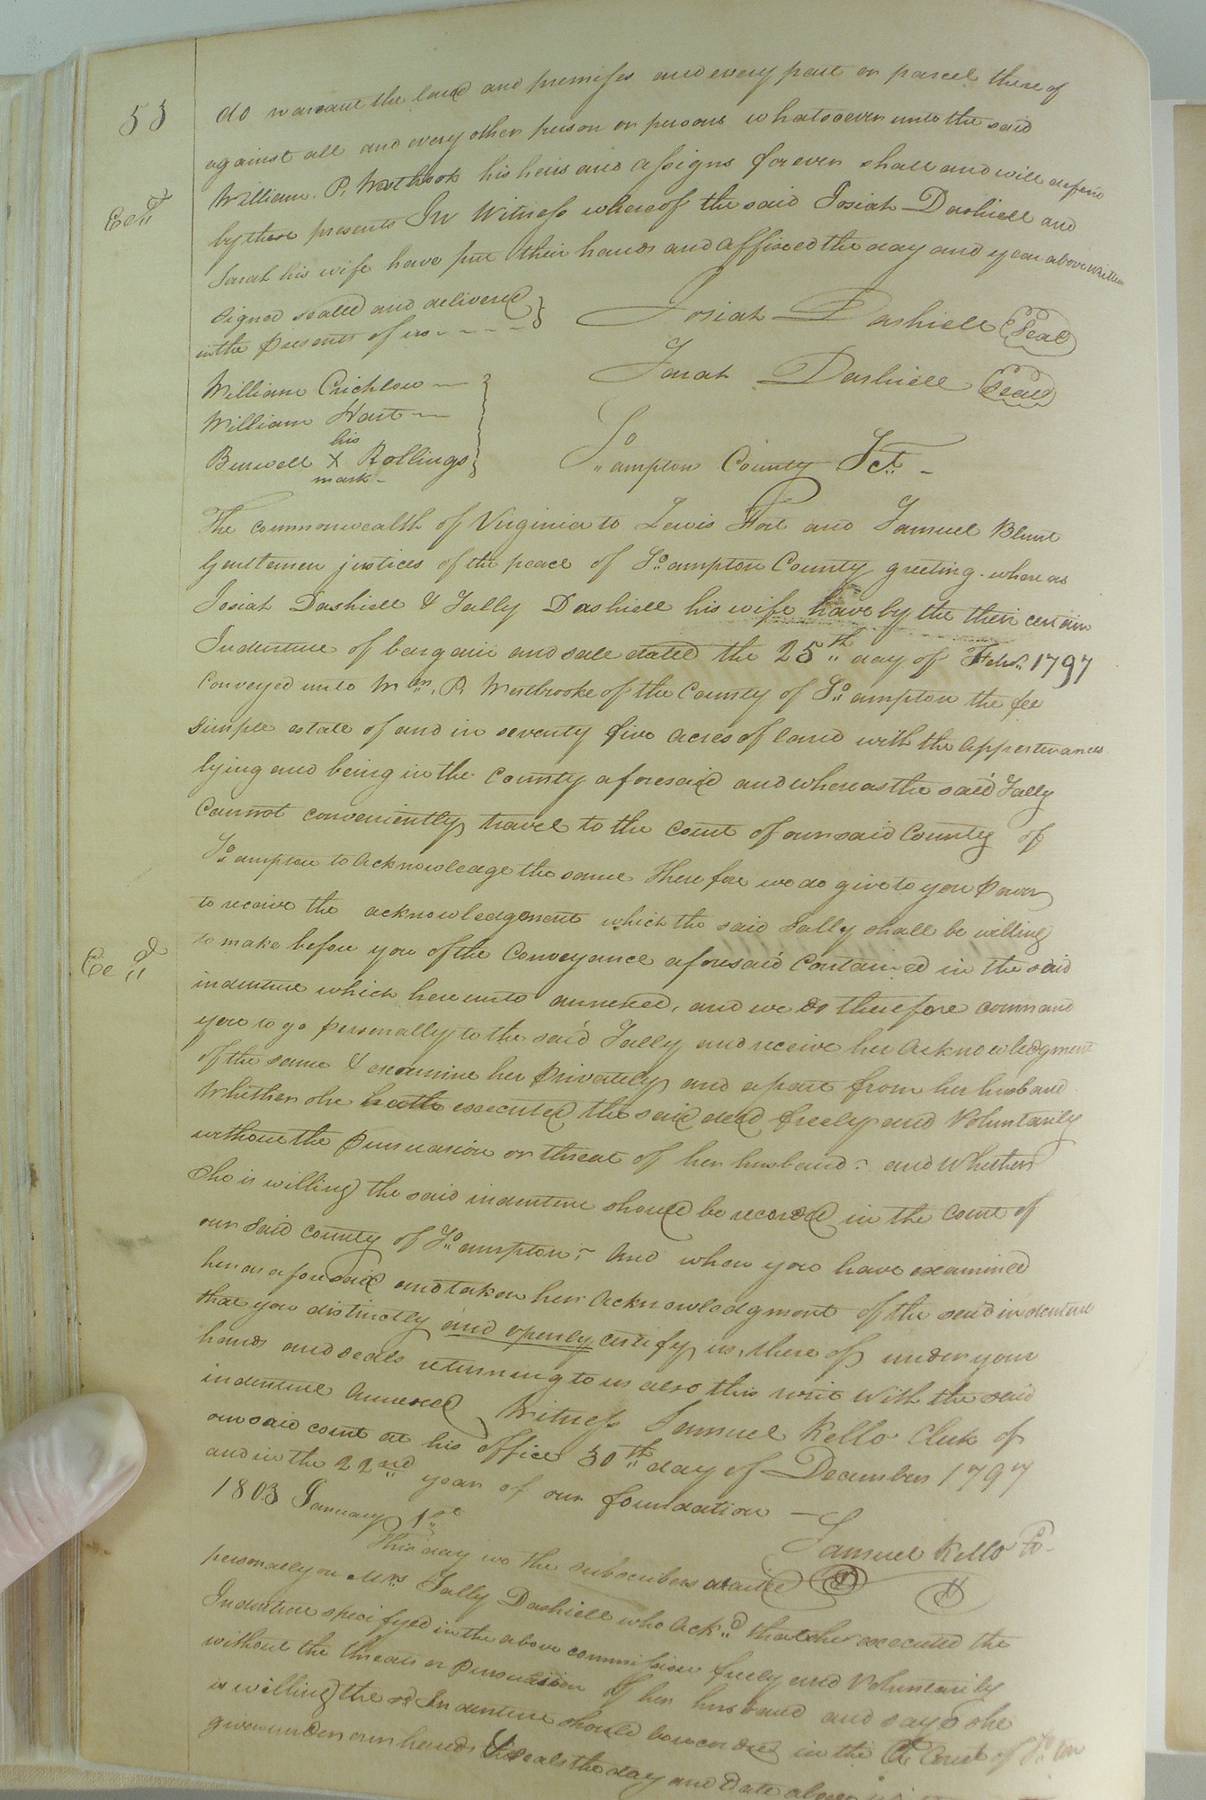 53
do warrant the land and premises and every part or parcel there of
against all and every other person or persons whatsoever unto the said
William. P. Westbrook his heirs and assigns forever shall and will defend
Ex.d
by these presents In Witness whereof the said Josiah Dashiell and
Sarah his wife have put their hands and affixed the day and year above written
Signed sealed and delivered
in the presents of us - - - -
Josiah Dashiell Seal
Sarah Dashiell Seal
William Crichlow —
William Hart —
his
Burwell X Rollings
mark -
So.ampton County Sct. -
The commonwealth of Virginia to Lewis Fort and Samuel Blunt
Gentlemen justices of the peace of So.ampton County greeting. where as
Josiah Dashiell & Sally Dashiell his wife have by the their certain
Indenture of bargain and sale dated the 25th day of Feb. 1797
Conveyed unto Wm. P. Westbrooke of the County of So.ampton the fee
simple estate of and in seventy five acres of land with the appertenances
lying and being in the County aforesaid and whereas the said Sally
Cannot conveniently travel to the Court of our said County of
So.ampton to acknowledge the same Therefore we do give to you Power
to receive the acknowledgement which the said Sally shall be willing
Ex.d
to make before you of the Conveyance aforesaid Contained in the said
indenture which hereunto annexed, and we do therefore command
you to go personally to the said Sally and receive her acknowledgment
of the same & examine her Privately and apart from her husband
Whither she hath executed the said deed freely and Voluntarily
without the Pursuasion or threat of her husband: and Whether
She is willing the said indenture should be recorded in the Court of
our said County of So.ampton: And when you have examined
her as aforesaid and taken her Acknowledgment of the said indenture
that you distinctly and openly certify us, there of under your
hands and seals returning to us also this writ With the said
indenture Annexed Witness Samuel Kello Clerk of
our said court at his office 30th day of December 1797
and in the 22nd year of our foundation —
Samuel Kello
1803 January 1st
This day we the subscribers waited
personally on Mrs Sally Dashiell who Ack.d that she executed the
Indenture specifyed in the above commission freely and Voluntarily
without the threats or Pursuasion of her husband and says she
is willing the sd Indenture should be recorded in the Court of
given under our hands & seals the day and Date above